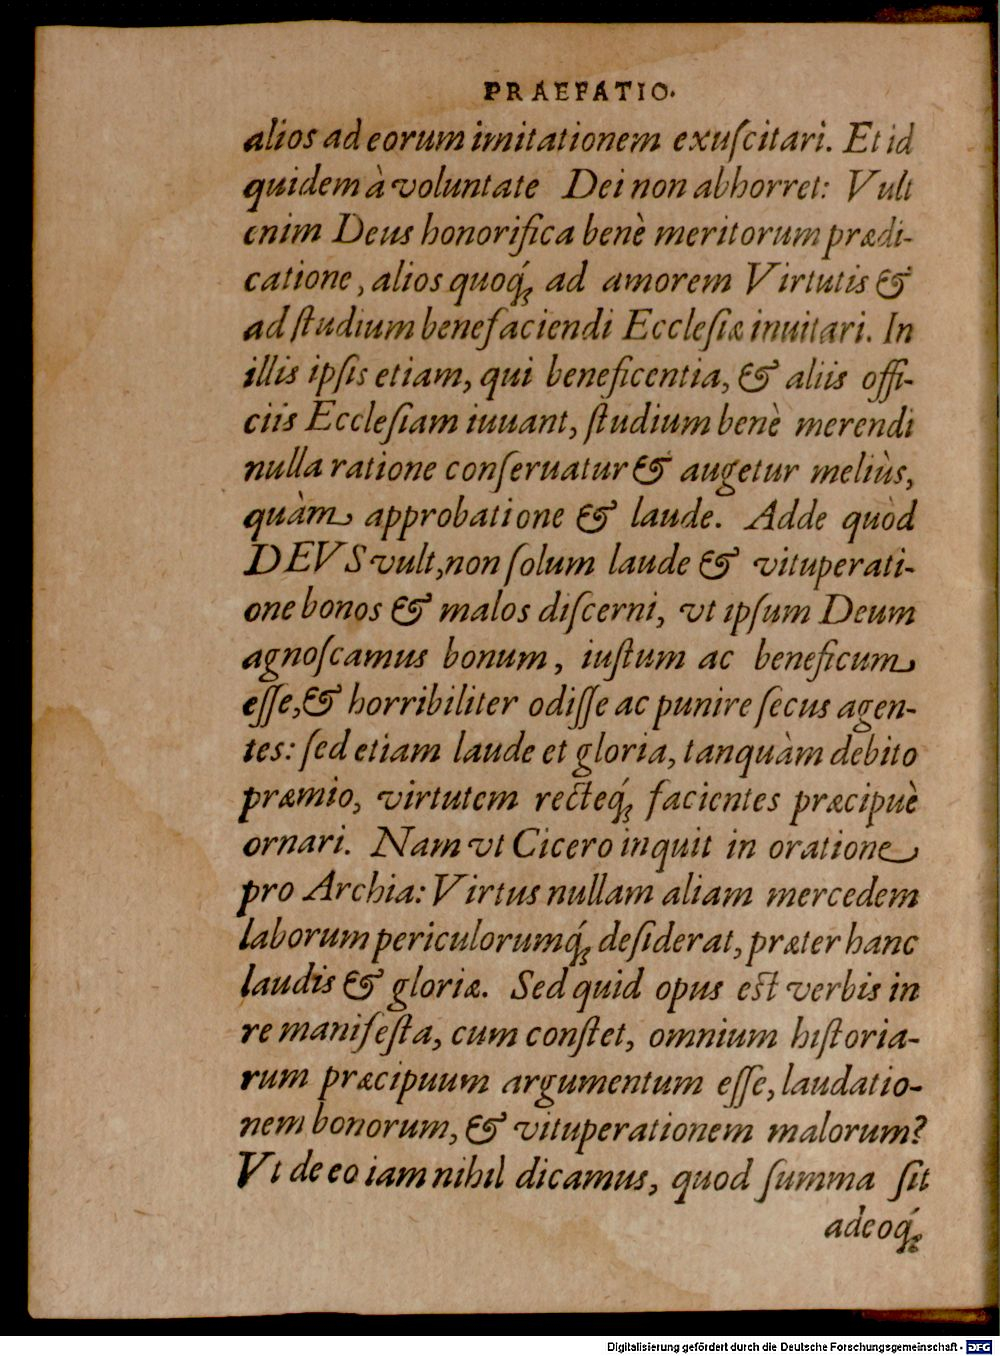 PRAEFATIO.
alios ad eorum imitationem exuſcitari. Et id
quidem à voluntate Dei non abhorret: Vult
enim Deus honorifica benè meritorum prædi-
catione, alios quoq́; ad amorem Virtutis &
ad ſtudium benefaciendi Eccleſiæ inuitari. In
illis ipſis etiam, qui beneficentia, & aliis offi-
ciis Eccleſiam iuuant, ſtudium benè merendi
nulla ratione conſeruatur & augetur meliùs,
quàm approbatione & laude. Adde quòd
DEVS vult, non ſolum laude & vituperati-
one bonos & malos diſcerni, vt ipſum Deum
agnoſcamus bonum, iuſtum ac beneficum
eſſe, & horribiliter odiſſe ac punire ſecus agen-
tes: ſed etiam laude et gloria, tanquàm debito
præmio, virtutem recteq́; facientes præcipuè
ornari. Nam vt Cicero inquit in oratione
pro Archia: Virtus nullam aliam mercedem
laborum periculorumq́; deſiderat, præter hanc
laudis & gloriæ. Sed quid opus eſt verbis in
re manifeſta, cum conſtet, omnium hiſtoria-
rum præcipuum argumentum eſſe, laudatio-
nem bonorum, & vituperationem malorum?
Vt de eo iam nihil dicamus, quod ſumma ſit
adeoq́;
Digitalisierung gefördert durch die Deutsche Forschungsgemeinschaft - DFG